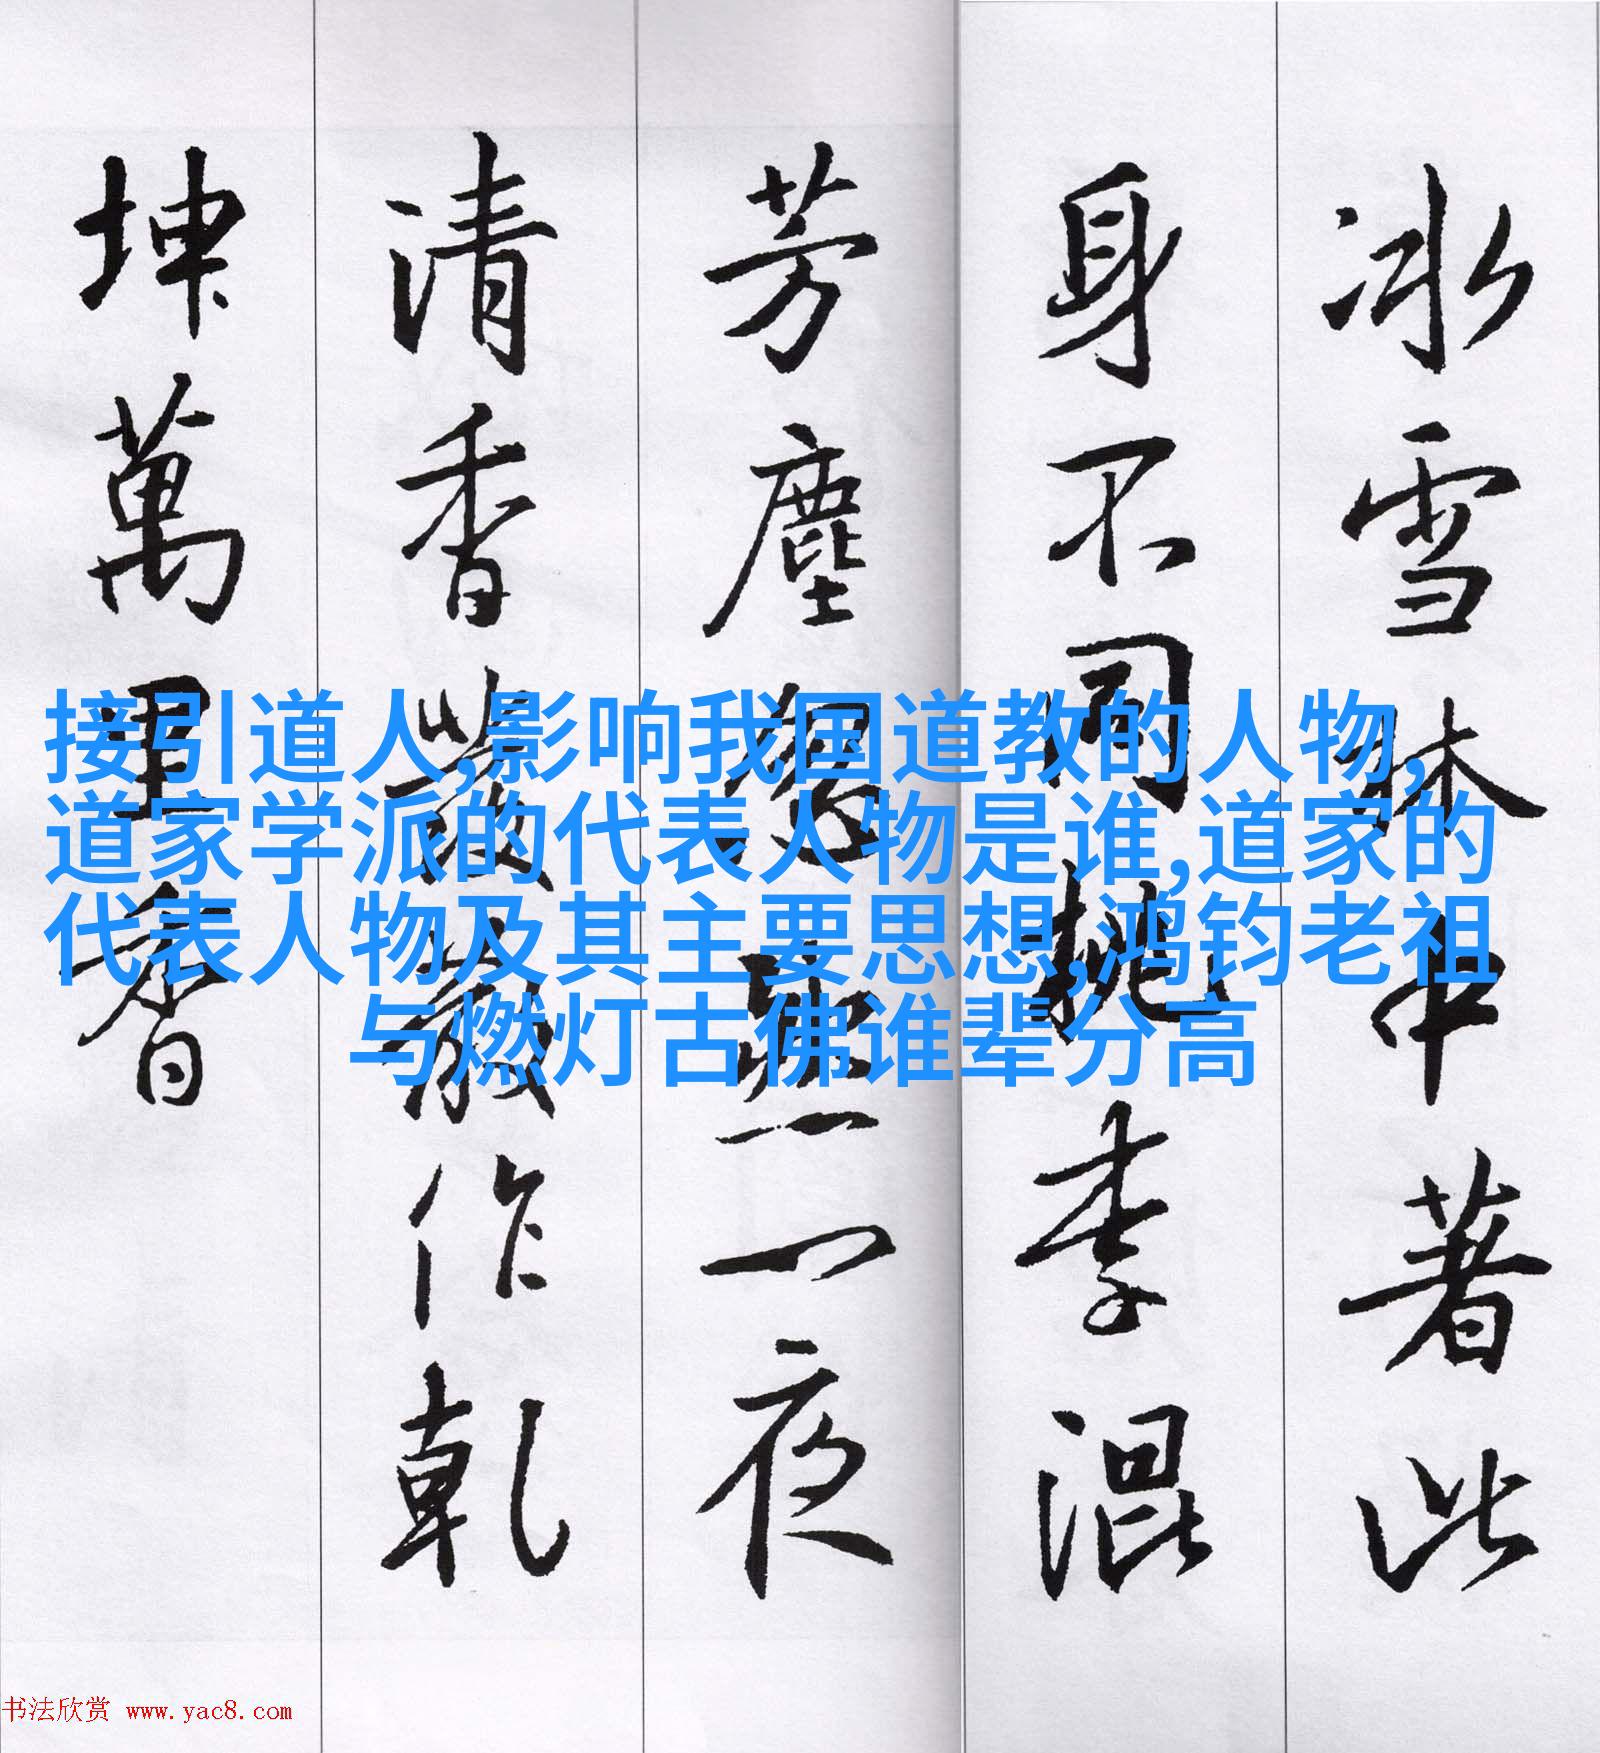 冰雪林中著此
身不同桃李混
芳塵忽然一夜
清香發散作乾
坤萬里春
接引道人,影响我国道教的人物,
道家学派的代表人物是谁,道家的
代表人物及其主要思想,鸿钧老祖
与燃灯古佛谁辈分高
书法欣赏 www.yac8.com